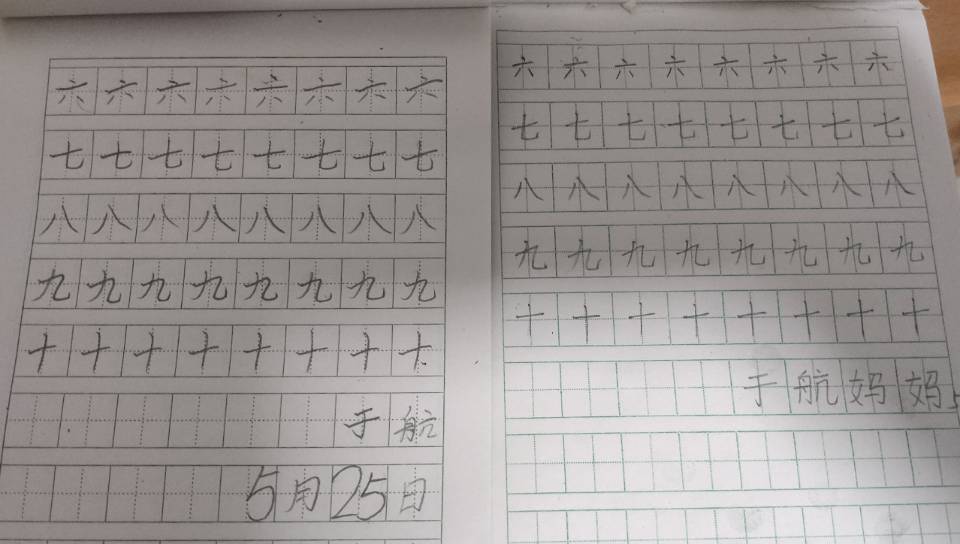 六六六六六六六六
七七七七七七七七
八八八八八八八八
九九九九九九九九
十十十十十十十十
于航
5月25日
六六六六六六六六
七七七七七七七七
八八八八八八八八
九九九九九九九九
十十十十十十十十
于航妈妈